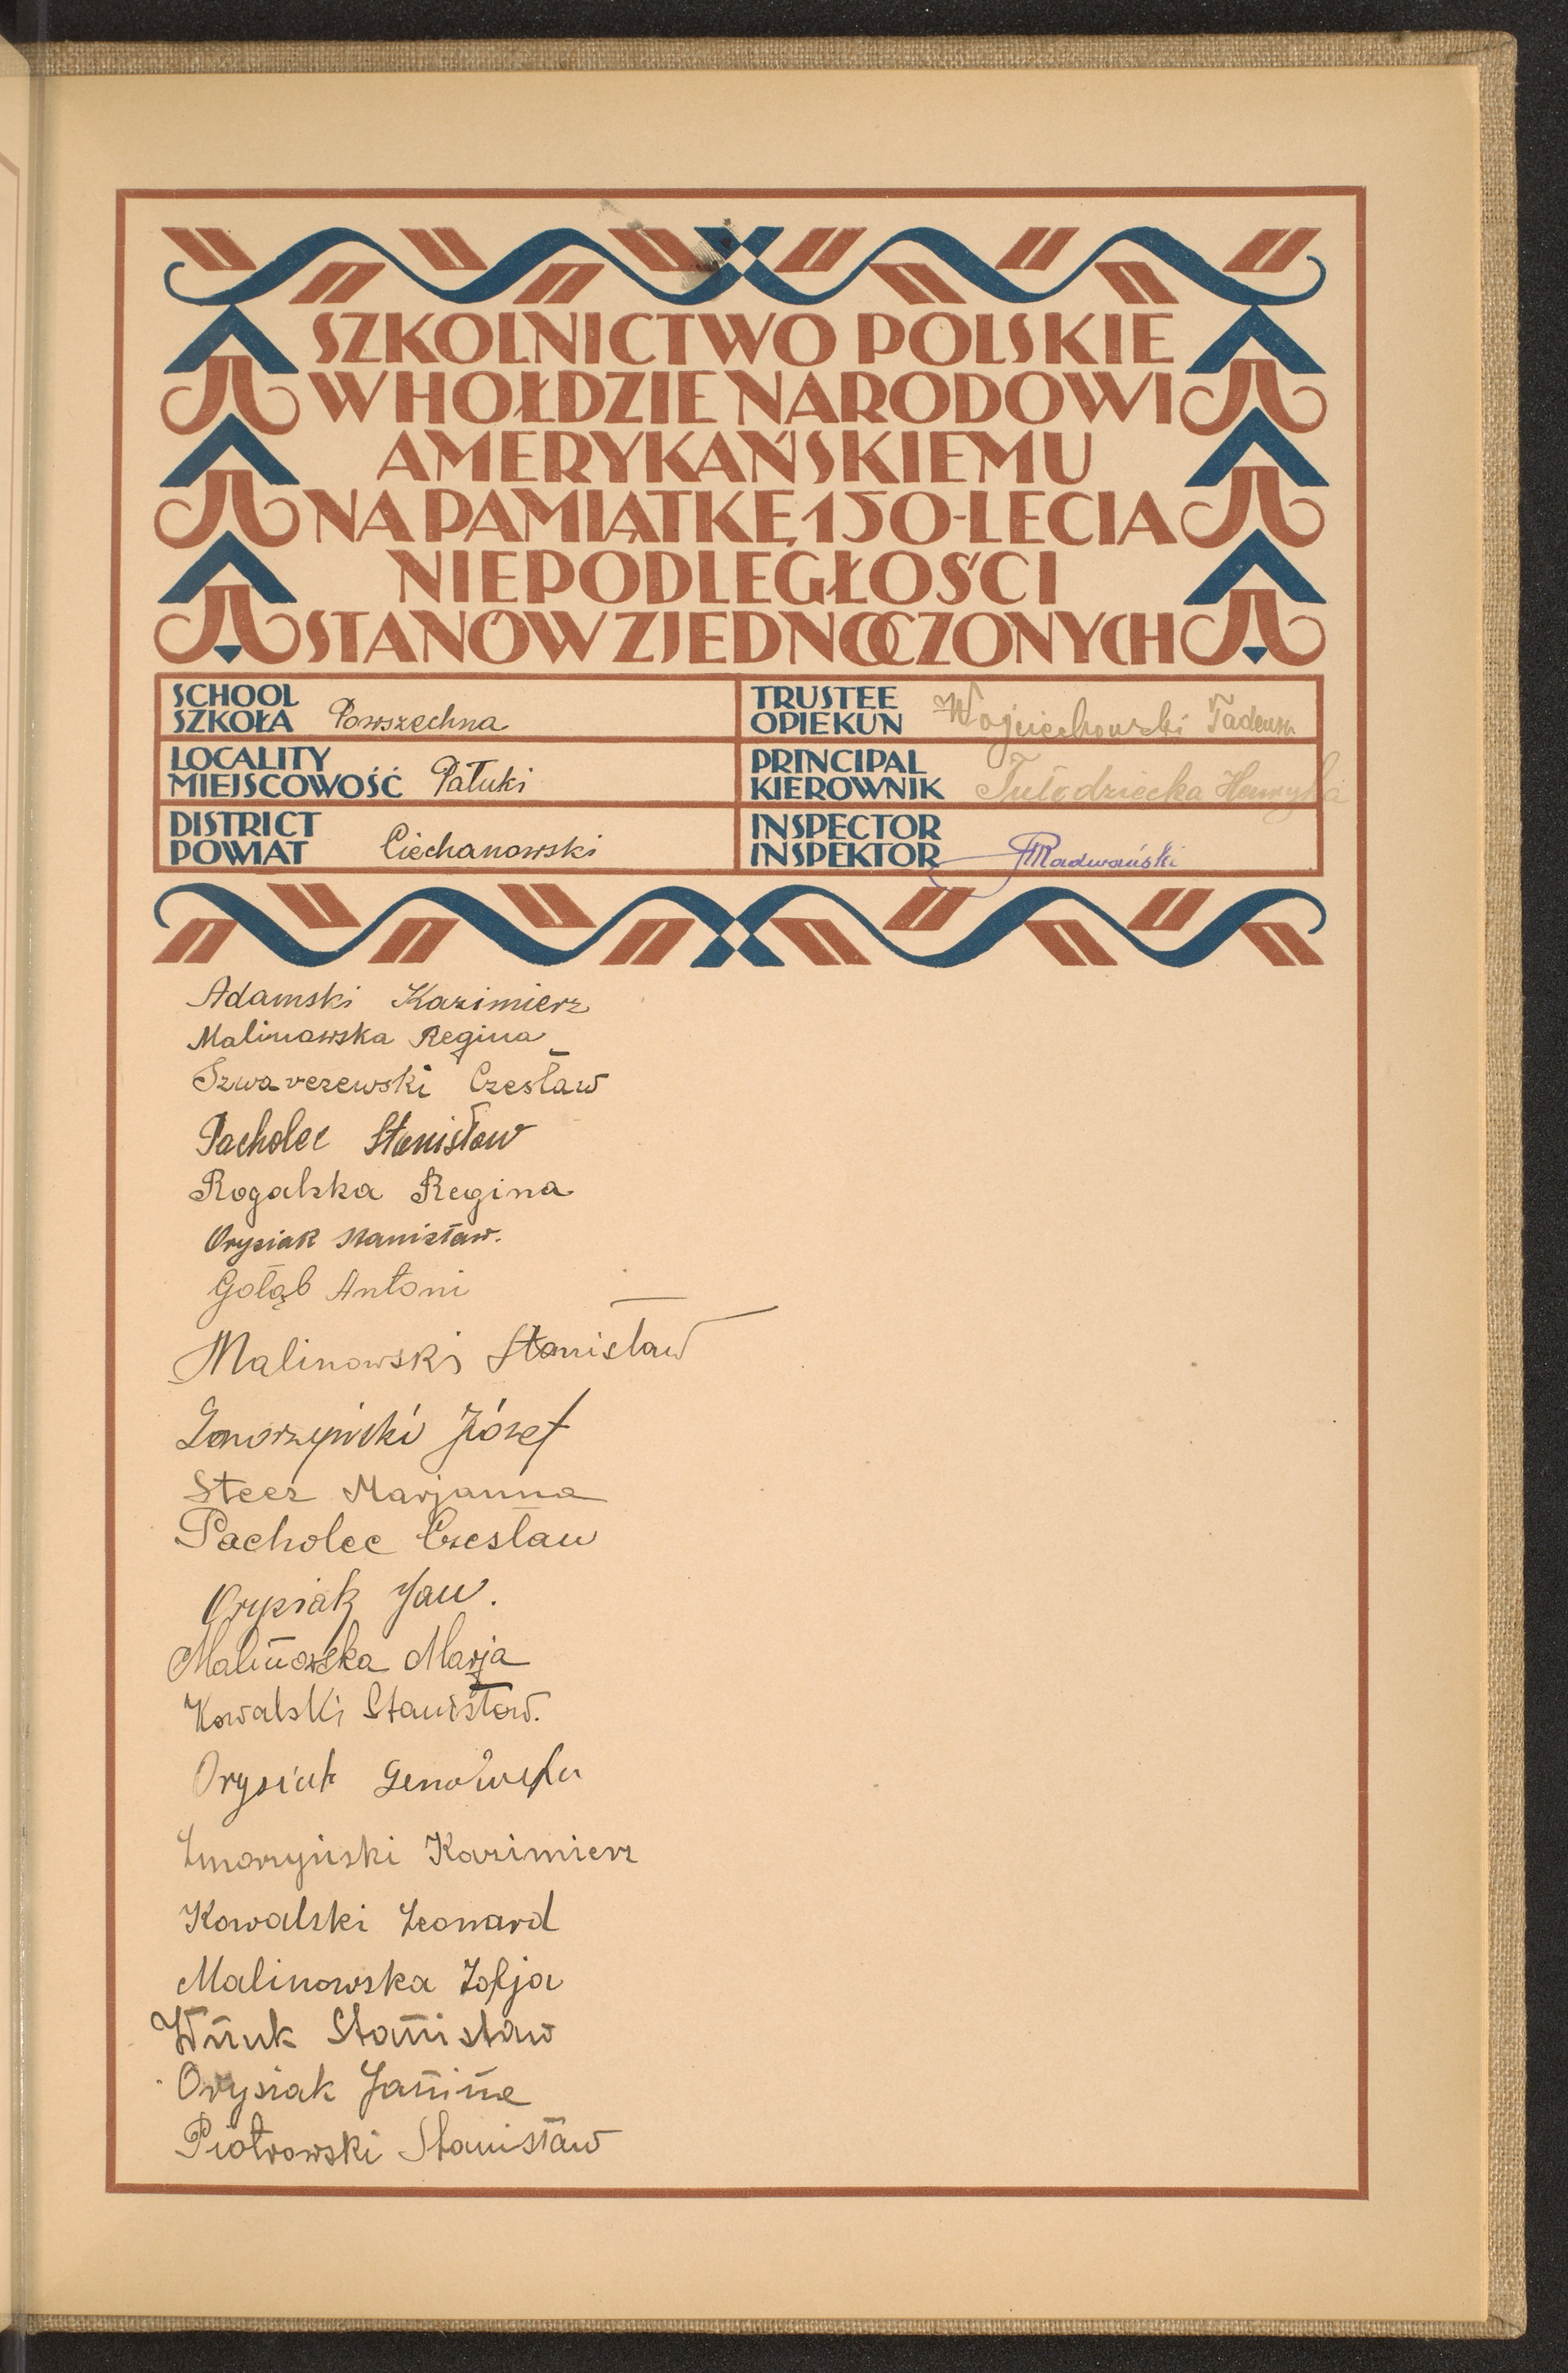 SZKOLNICTWO POLSKIE
W HOŁDZIE NARODOWI
AMERYKAŃSKIEMU
NA PAMIĄTKĘ 150-LECIA
NIEPODLEGŁOŚCI
STANÓW ZJEDNOCZONYCH
SCHOOL
SZKOŁA Powszechna
TRUSTEE
OPIEKUN Wojciechowski Tadeusz
LOCALITY
MIEJSCOWOŚĆ Pałuki
PRINCIPAL
KIEROWNIK Tułodziecka Henryka
DISTRICT
POWIAT Ciechanowski
INSPECTOR
INSPEKTOR Radwański
Adamski Kazimierz
Malinowska Regina
Czesław
Pacholec Stanisław
Rogalska Regina
Orysiak Stanisław.
Gołąb Antoni
Malinowski Stanisław
Józef
Marjanna
Pacholec Czesław
Orysiak Jan.
Malinowska Marja
Kowalski Stanisław.
Orysiak Genowefa
Zmorzyński Kazimierz
Kowalski Leonard
Malinowska Zofja
Wnuk Stanisław
Orysiak Janina
Piotrowski Stanisław